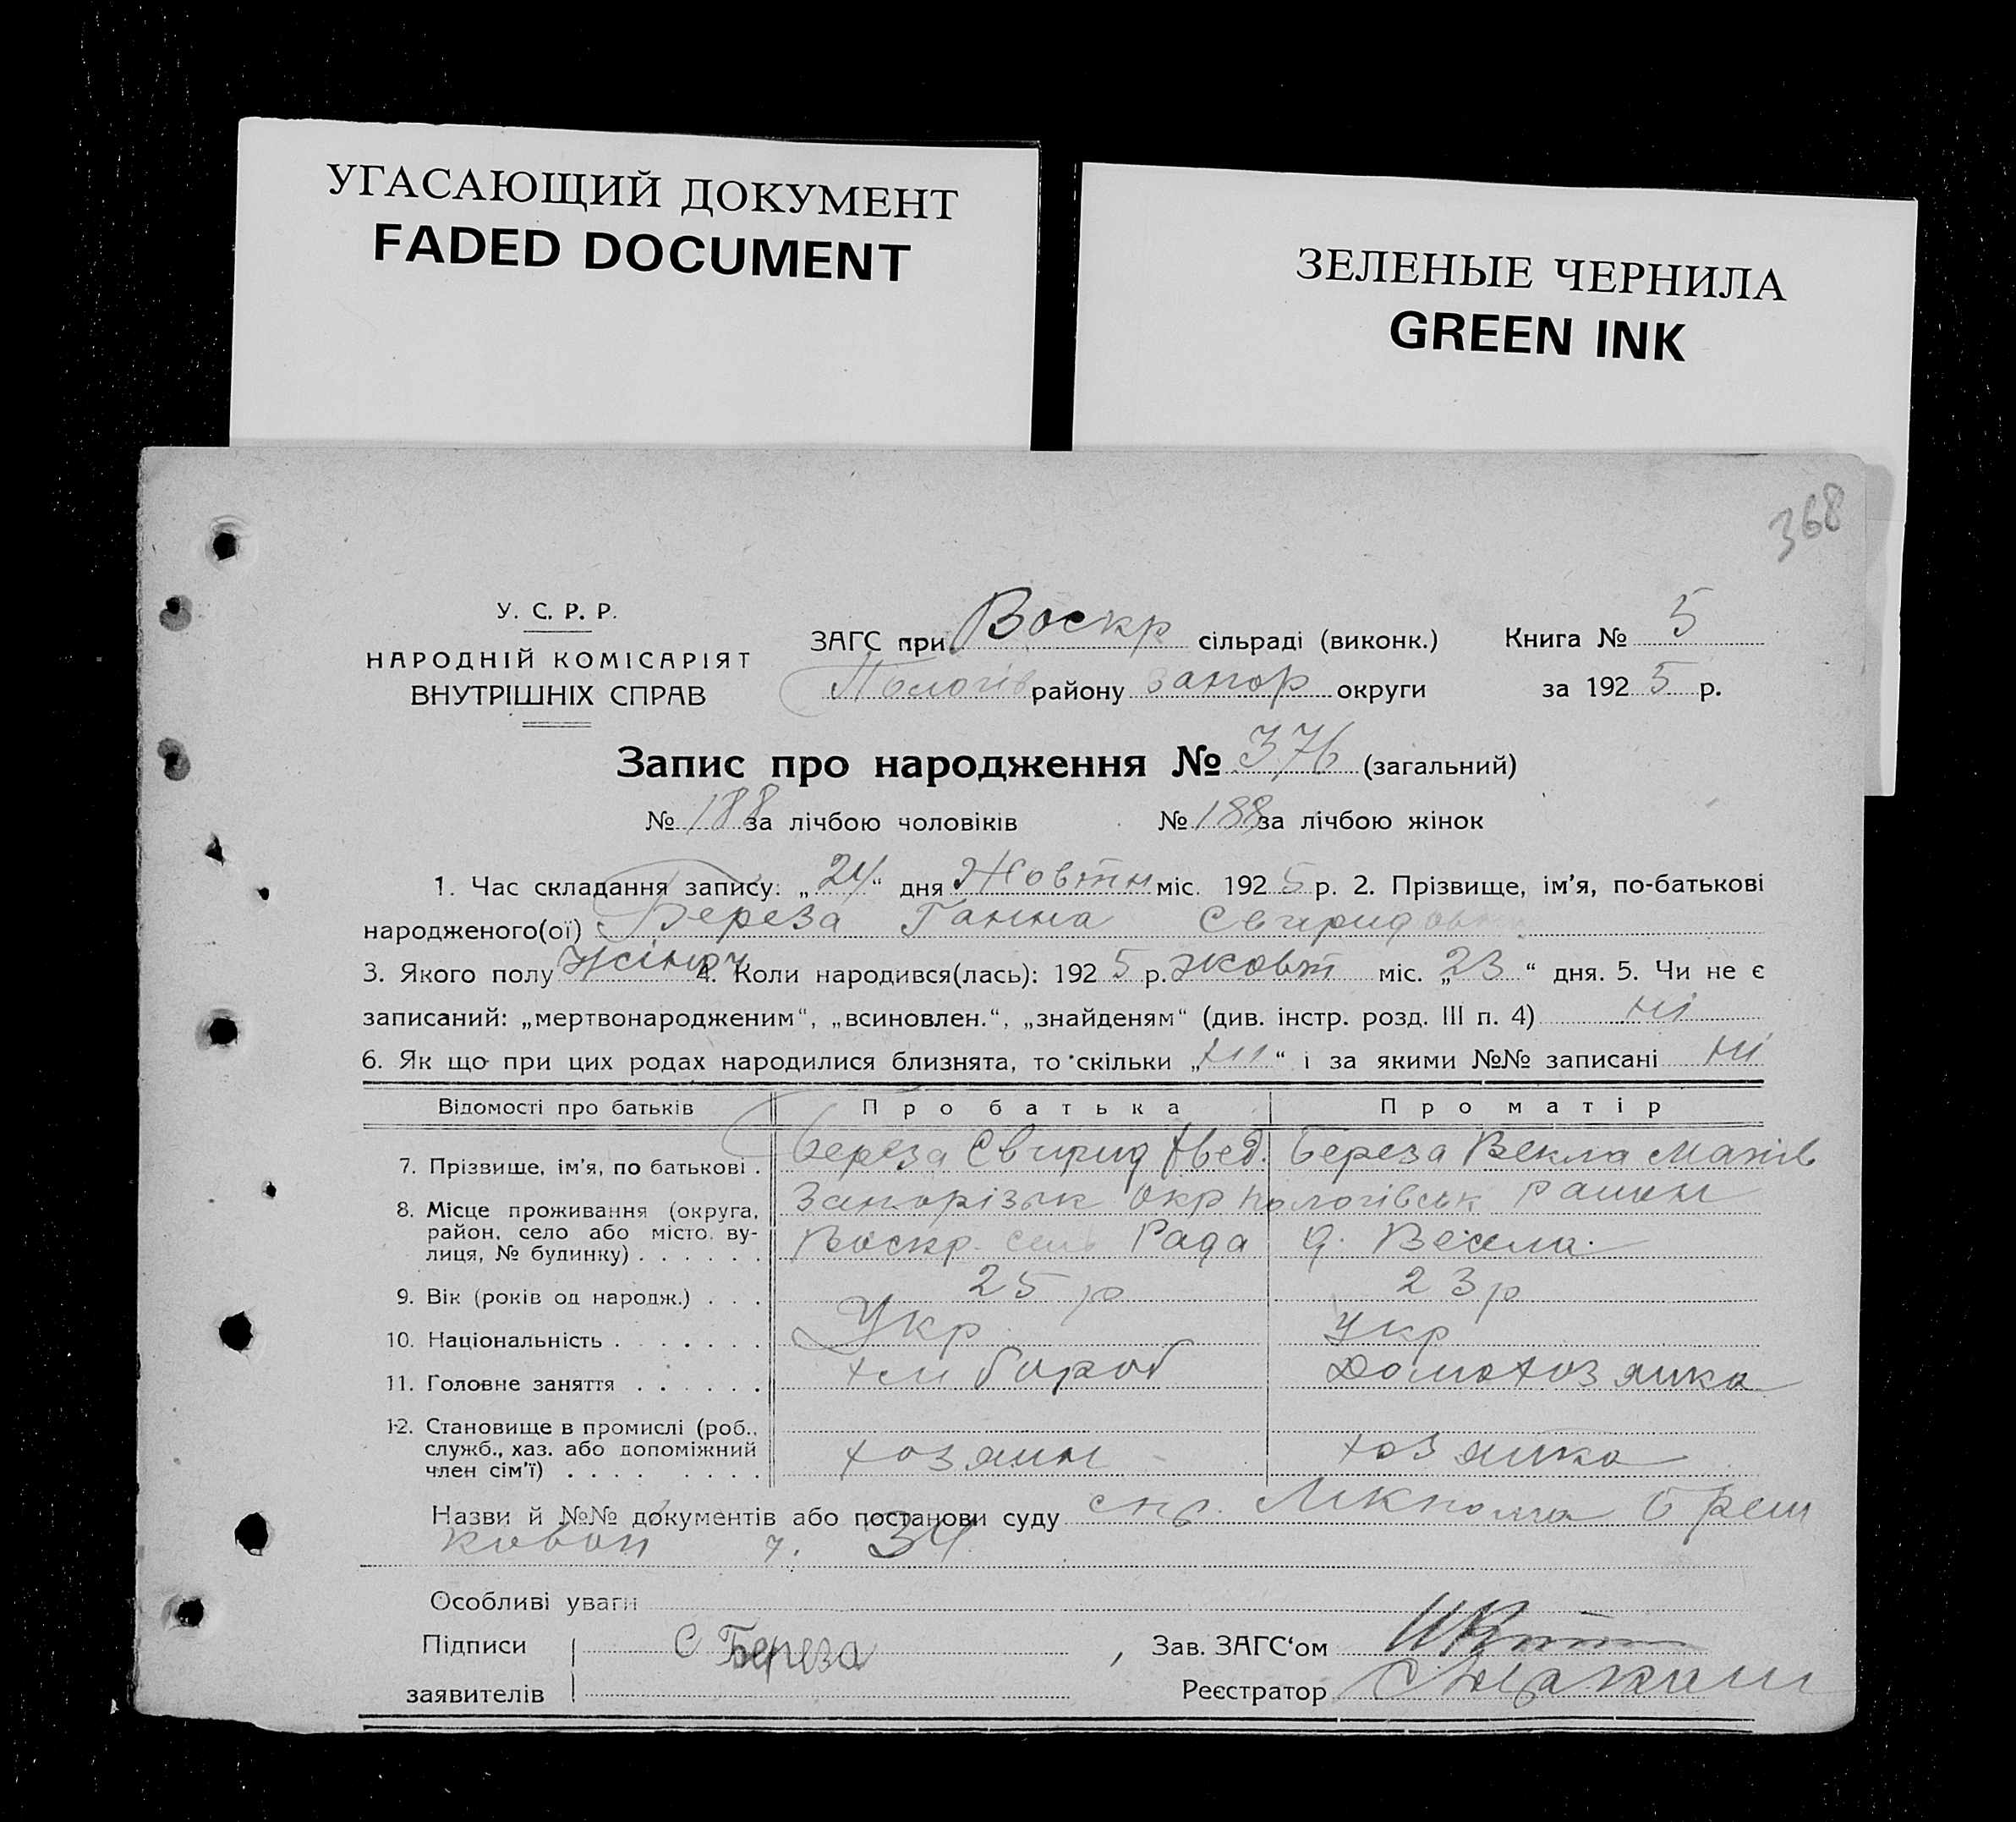 УГАСАЮЩИЙ ДОКУМЕНТ
FADED DOCUMENT
ЗЕЛЕНЫЕ ЧЕРНИЛА
GREEN INK
368
У. С. Р. Р.
НАРОДНІЙ КОМІСАРІЯТ
ВНУТРІШНІХ СПРАВ
ЗАГС при Воскр сільраді (виконк.) Книга № 5
Пологів району Запор округи за 1925 р.
Запис про народження № 376 (загальний)
№ 188 за лічбою чоловіків № 188 за лічбою жінок
1. Час складання запису: „24“ дня Жовтн міс. 1925 р. 2. Прізвище, ім'я, по-батькові
народженого(ої) Береза Ганна Свиридовн
3. Якого полу Жіноч 4. Коли народився(лась): 1925 р. жовт міс. „23“ дня. 5. Чи не є
записаний: „мертвонародженим“, „всиновлен.“, „знайденям“ (див. інстр. розд. III п. 4) ні
6. Як що при цих родах народилися близнята, то скільки „ні“ і за якими №№ записані ні
Відомості про батьків Про батька Про матір
7. Прізвище, ім'я, по батькові . Береза Свирид Береза Векла
8. Місце проживання (округа, Запорізьк Окр Пологівськ Раион
район, село або місто, ву-
лиця, № будинку) . . . . . . Воскр. сель Рада Весела
9. Вік (років од народж.) . . . 25 р 23 р
10. Національність . . . . . . . Укр Укр
11. Головне заняття . . . . . . хлибороб Домохозяика
12. Становище в промислі (роб.,
служб., хаз. або допоміжний
член сім'ї) . . . . . . . . хозяин хозяйка
Назви й №№ документів або постанови суду
ч. 34
Особливі уваги
Підписи С Береза , Зав. ЗАГС'ом
заявителів Реєстратор